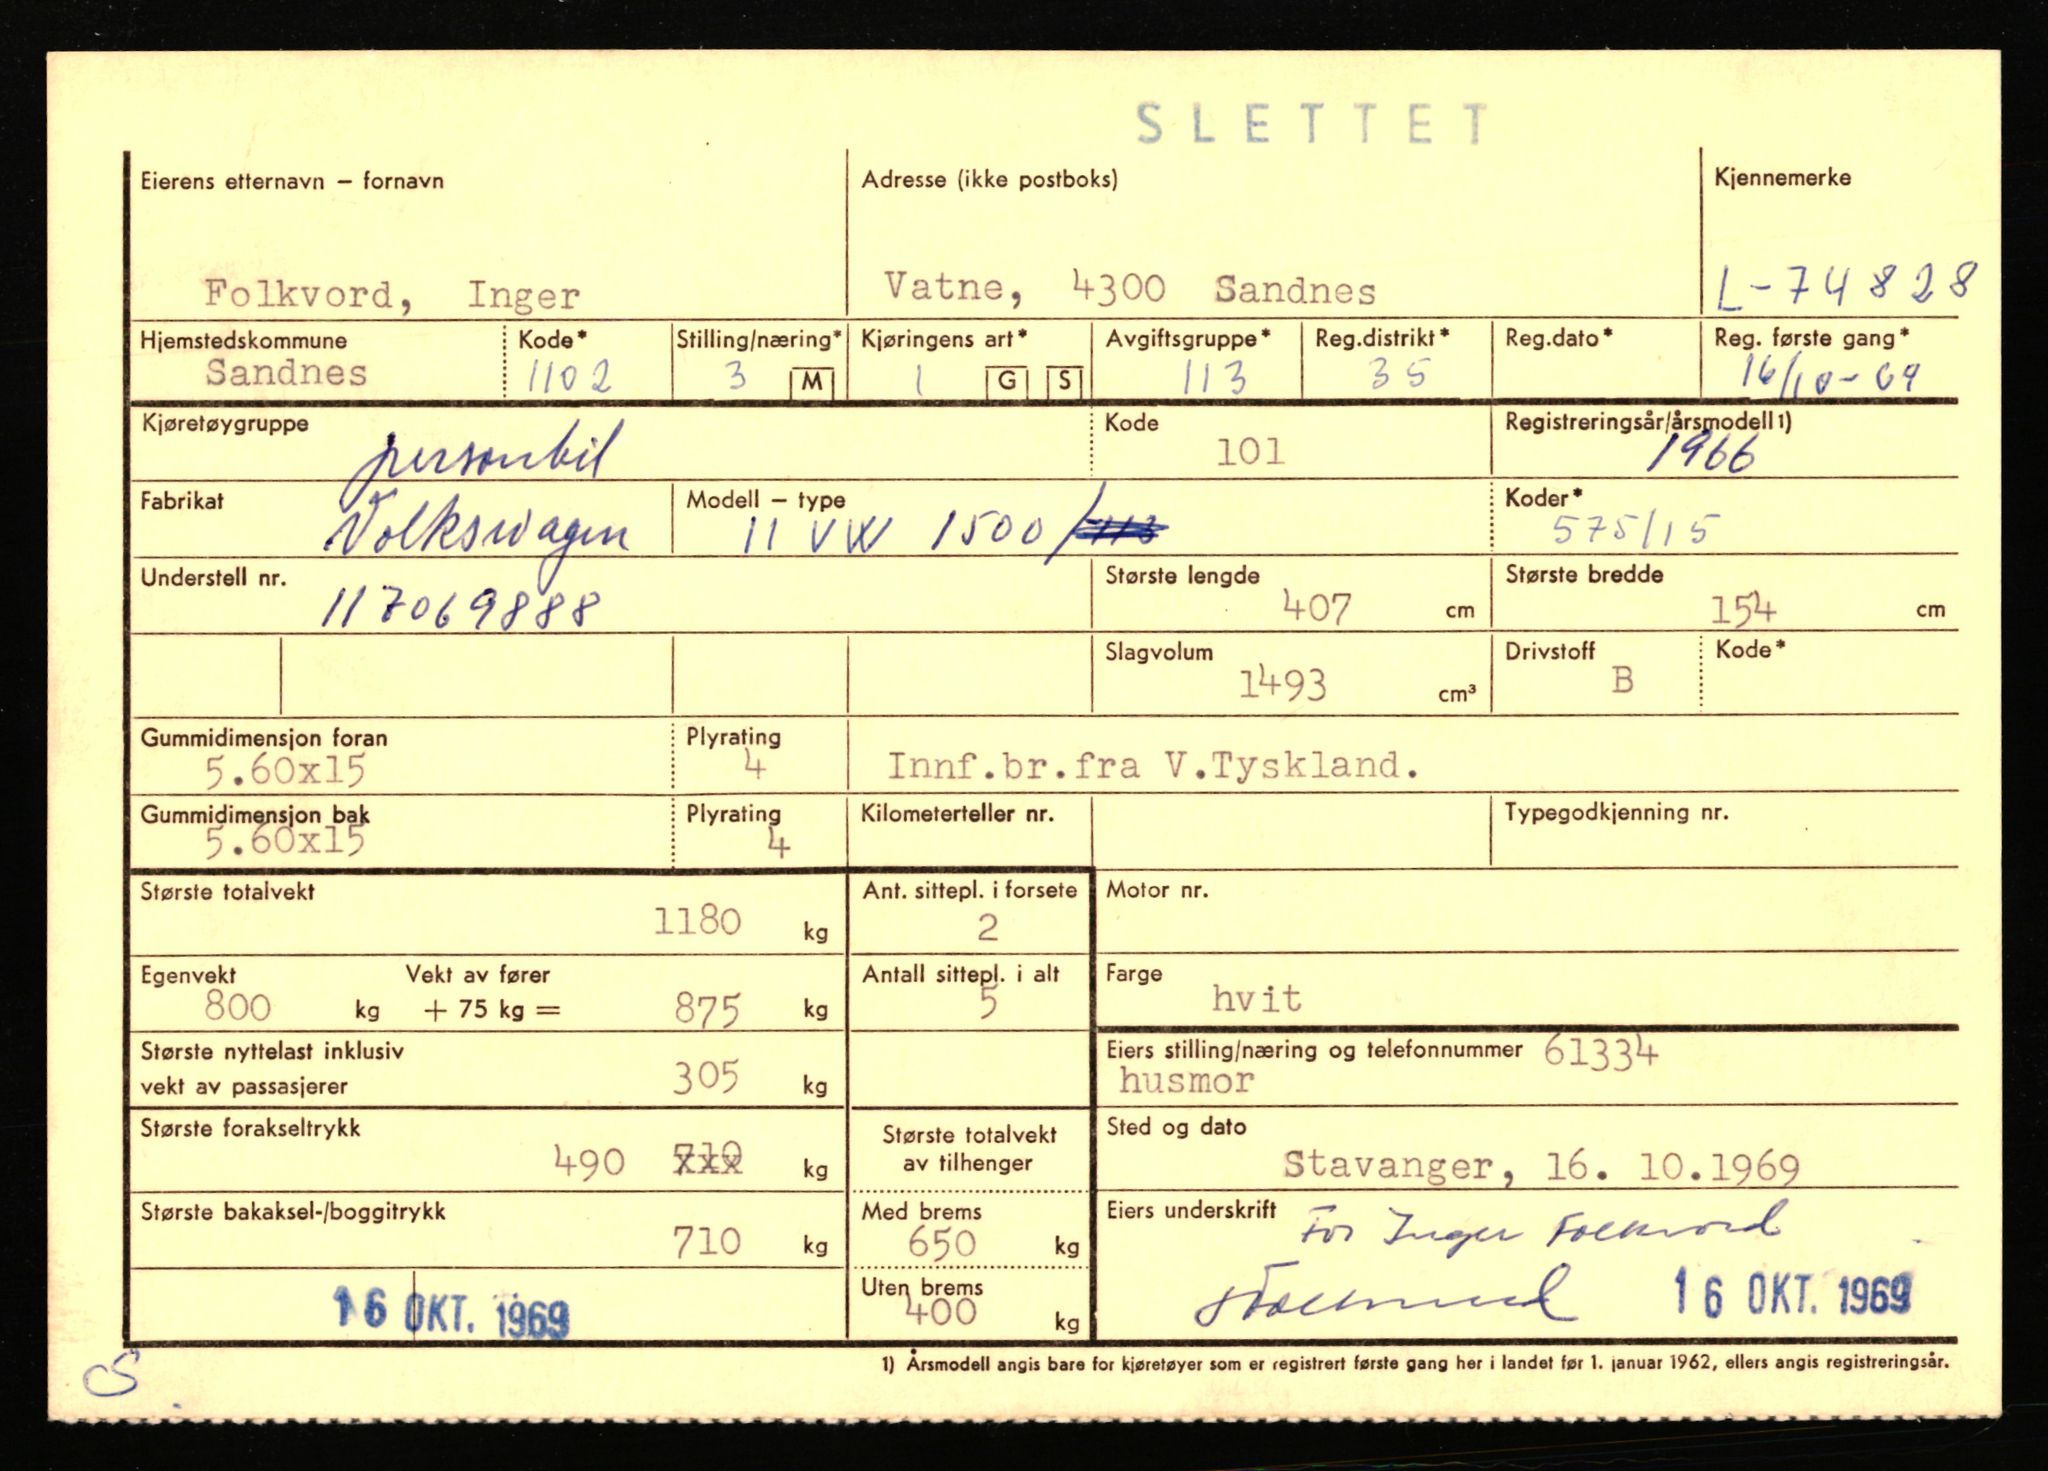 SLETTET
Eierens etternavn – fornavn
Adresse (ikke postboks)
Kjennemerke
Folkvord, Inger
Vatne, 4300 Sandnes
L-74828
Hjemstedskommune
Kode*
Stilling/næring*
Kjøringens art*
Avgiftsgruppe*
Reg.distrikt*
Reg.dato*
Reg. første gang*
Sandnes
1102
3 M
1 G S
113
35
16/10-69
Kjøretøygruppe
personbil
Kode
101
Registreringsår/årsmodell1)
1966
Fabrikat
Volkswagen
Modell – type
11 VW 1500/
Koder*
575/15
Understell nr.
117069888
Største lengde
407 cm
Største bredde
154 cm
Slagvolum
1493 cm³
Drivstoff
B
Kode*
Gummidimensjon foran
5.60x15
Plyrating
4
Innf.br.fra V.Tyskland.
Gummidimensjon bak
5.60x15
Plyrating
4
Kilometerteller nr.
Typegodkjenning nr.
Største totalvekt
1180 kg
Ant. sittepl. i forsete
2
Motor nr.
Egenvekt
800 kg
Vekt av fører
+ 75 kg = 875 kg
Antall sittepl. i alt
5
Farge
hvit
Største nyttelast inklusiv
vekt av passasjerer
305 kg
Eiers stilling/næring og telefonnummer 61334
husmor
Største forakseltrykk
490 710 kg
Største totalvekt
av tilhenger
Sted og dato
Stavanger, 16. 10.1969
Største bakaksel-/boggitrykk
710 kg
Med brems
650 kg
Eiers underskrift
For Inger Folkvord
Uten brems
400 kg
16 OKT. 1969
16 OKT. 1969
1) Årsmodell angis bare for kjøretøyer som er registrert første gang her i landet før 1. januar 1962, ellers angis registreringsår.